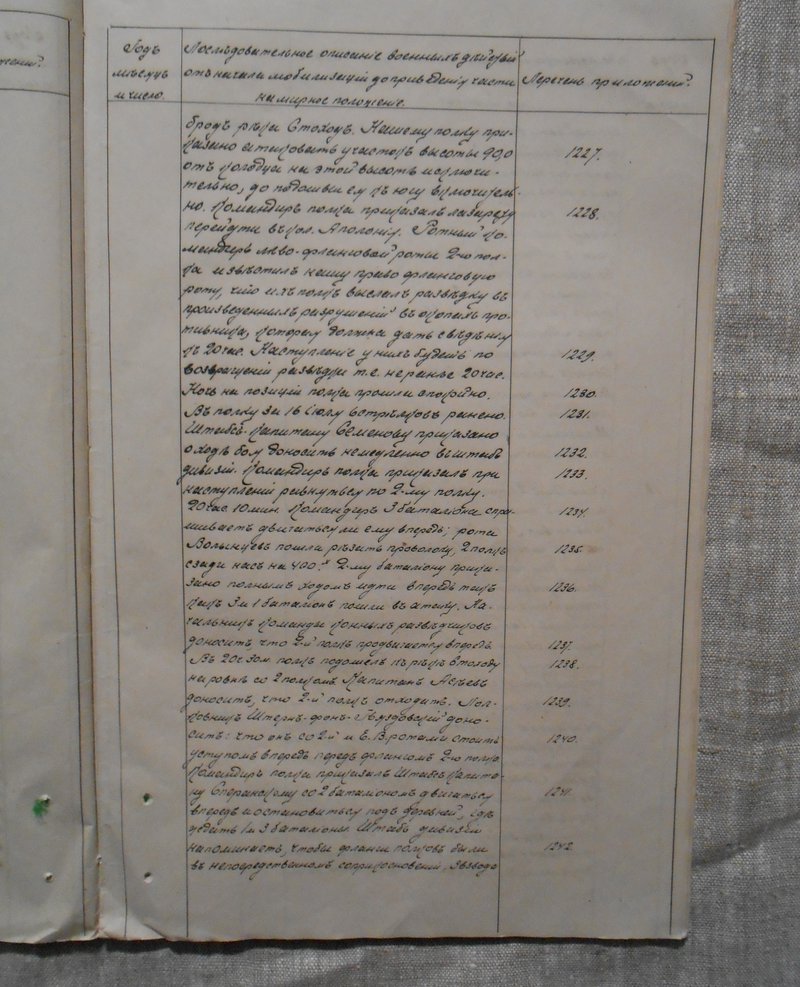 Годъ
мѣсяцъ
и число.
Послѣдовательное описаніе военныхъ дѣйствій
отъ начала мобилизаціи до приведенія части
на мирное положеніе.
Перечень приложеній.
бродъ рѣки Стоходъ. Нашему полку при-
казано атаковать участокъ высоты 90,0 1227.
отъ колодца на этой высотѣ исключи-
тельно, до подошвы ея къ югу включитель-
но. Командиръ полка приказалъ лазарету 1228.
перейти въ кол. Аполонію. Ротный ко-
мандиръ лѣво-фланговой роты 2-го пол-
ка извѣстилъ нашу право фланговую
роту, что ихъ полкъ выслалъ развѣдку въ
произведенныхъ разрушеній въ окопахъ про-
тивника, которая должна дать свѣдѣнія
къ 20 час. Наступленіе у нихъ будетъ по 1229.
возвращеніи развѣдки т.е. не ранѣе 20 час.
Ночь на позиціи полка прошла спокойно. 1230.
Въ полку за 16 Іюля 6 стрѣлковъ ранено. 1231.
Штабсъ-Капитану Семенову приказано
о ходѣ боя доносить немедленно въ штабъ 1232.
дивизіи. Командиръ полка приказалъ при 1233.
наступленіи равняться по 2-му полку.
20 час 10 мин. Командиръ 3 баталіона спра- 1234.
шиваетъ двигаться ли ему впередъ; рота
Волынцевъ пошла рѣзать проволоку, 2 полкъ 1235.
сзади насъ на 400.ˣ 2-му баталіону прика-
зано полнымъ ходомъ идти впередъ такъ 1236.
какъ 3 и 1 баталіонъ пошли въ атаку. На-
чальникъ команды конныхъ развѣдчиковъ
доноситъ, что 2-й полкъ продвигается впередъ 1237.
Въ 20 ч 30 м полкъ подошелъ къ рѣкѣ Стоходу 1238.
наровнѣ со 2 полкомъ Капитанъ
доноситъ, что 2-й полкъ отходитъ. Пол- 1239.
ковникъ Штернъ-фонъ-Гвяздовскій доно-
ситъ: что онъ со 2-й и Е.В. ротами стоитъ 1240.
уступомъ впередъ передъ флангомъ 2-го полка.
Командиръ полка приказалъ Штабсъ Капита-
ну Сперанскому со 2 баталіономъ двигаться 1241.
впередъ и остановиться подъ деревней, гдѣ
сидятъ 1 и 3 баталіоны. Штабъ дивизіи
напоминаетъ, чтобы фланги полковъ были 1242.
въ непосредственномъ соприкосновеніи. 3 взвода